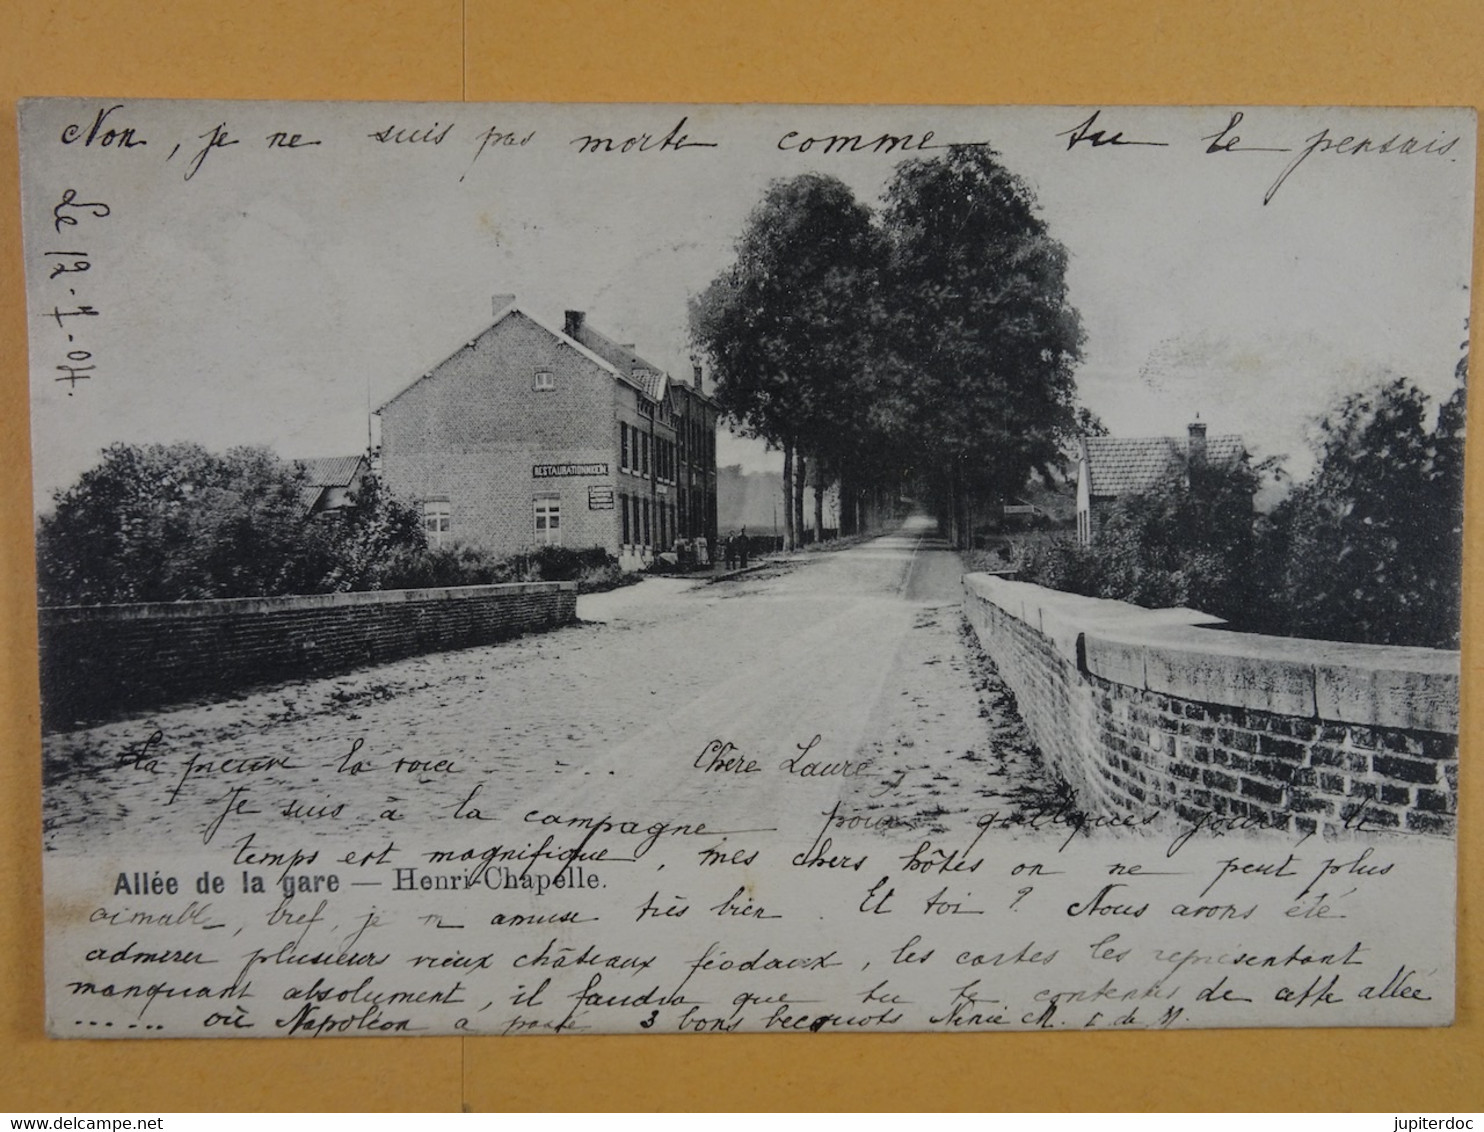 Non, je ne suis pas morte comme tu le pensais.
Le 12-7-04.
RESTAURATION
La preuve la voici ... Chère Laure,
Je suis à la campagne pour quelques jours, le
temps est magnifique, mes chers hôtes on ne peut plus
Allée de la gare — Henri-Chapelle.
aimable, bref, je m amuse très bien. Et toi ? Nous avons été
admirer plusieurs vieux châteaux féodaux, les cartes les représentant
manquant absolument, il faudra que tu te contentes de cette allée
...... où Napoléon a passé 3 bons becquots
jupiterdoc
www.delcampe.net